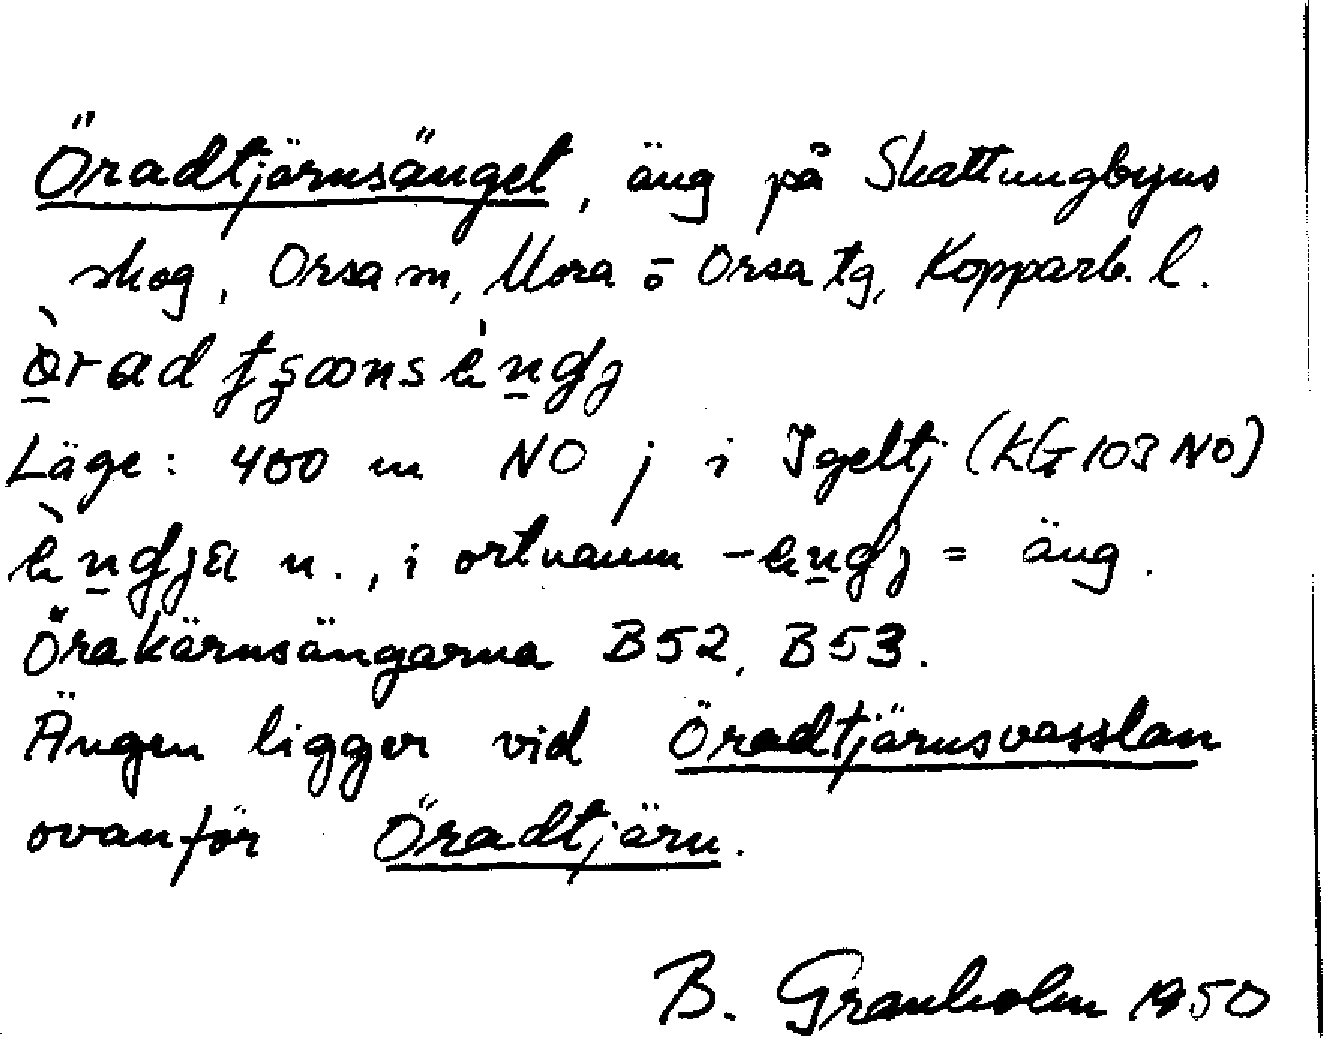 Öradtjärnsänget, äng på Skattungbyns
skog, Orsa sn, Mora o Orsa tg, Kopparb. l.
Läge: 400 m NO j i Igeltj (KG 103 NO)
n., i ortnamn = äng.
Örakärnsängarna B52, B53.
Ängen ligger vid Öradtjärnsvasslan
ovanför Öradtjärn.
B. Granholm 1950